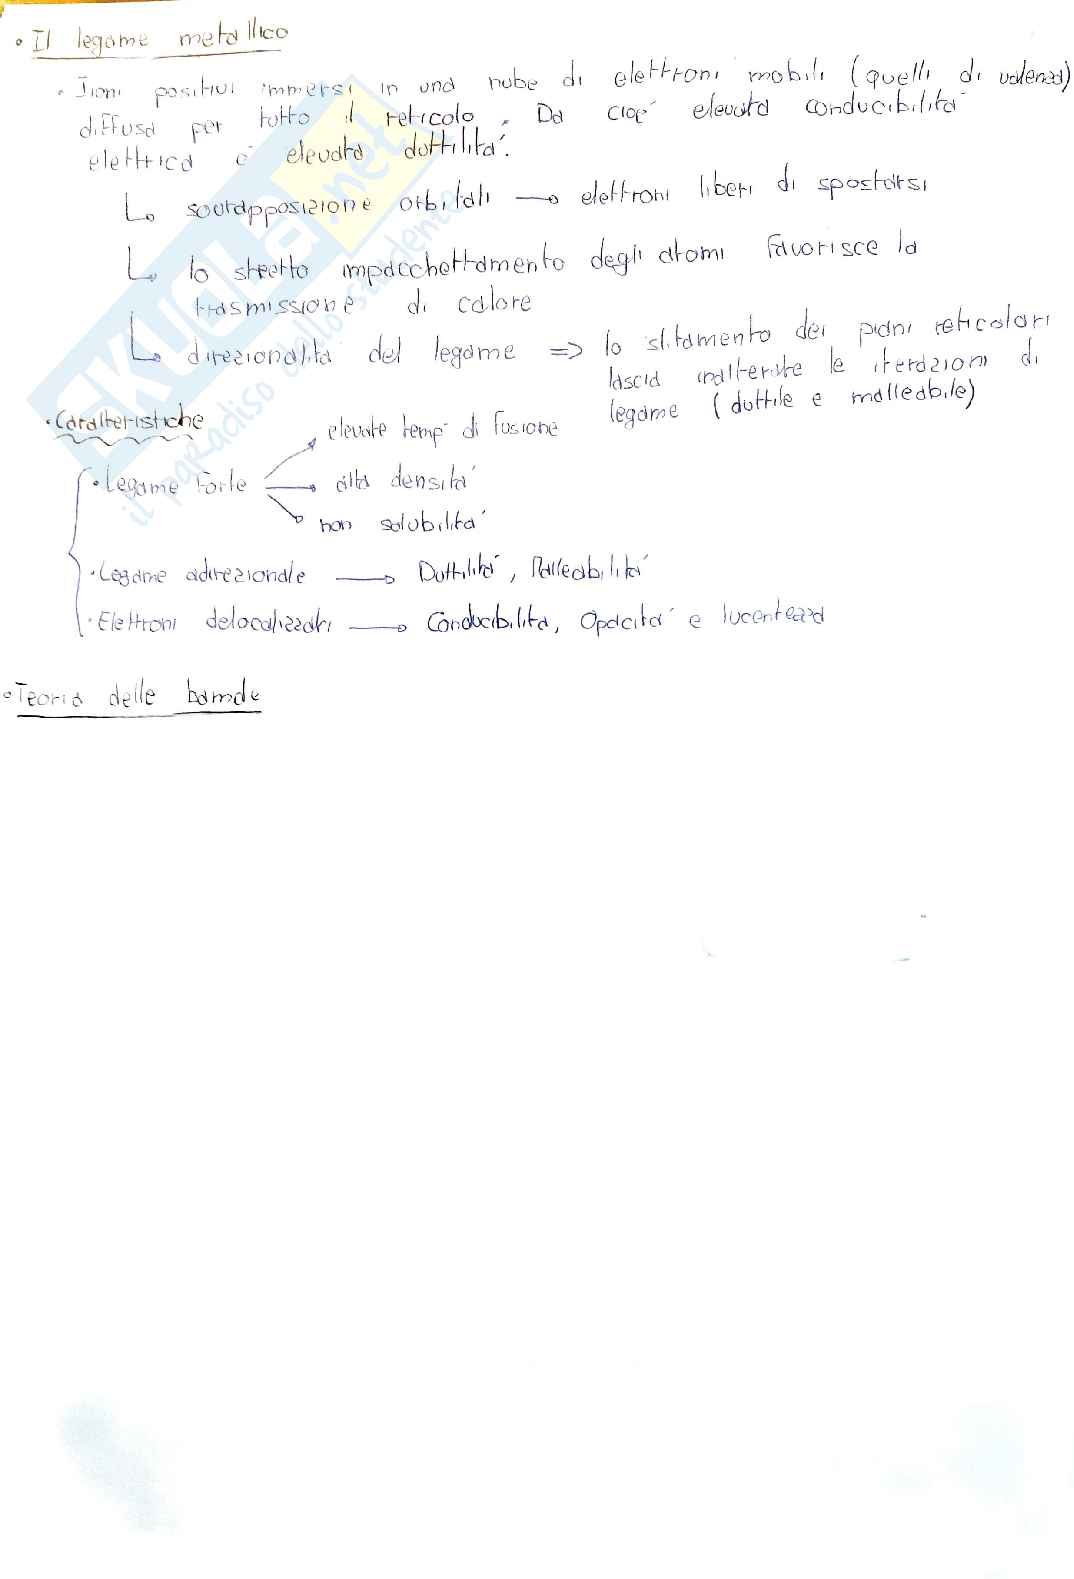 • Il legame metallico
• Ioni positivi immersi in una nube di elettroni mobili (quelli di valenza)
diffusa per tutto il reticolo. Da cioè elevata conducibilità
elettrica e elevata duttilità.
↳ sovrapposizione orbitali → elettroni liberi di spostarsi
↳ lo stretto impacchettamento degli atomi favorisce la
trasmissione di calore
↳ direzionalità del legame => lo slitamento dei piani reticolari
lascia inalterate le iterazioni di
legame (duttile e malleabile)
• Caratteristiche
elevate temp. di fusione
• Legame forte → alta densità
non solubilità
• Legame adirezionale → Duttilità, Malleabilità
• Elettroni delocalizzati → Conducibilità, Opacità e lucentezza
• Teoria delle bande
SKUOLA.net
il paradiso dello studente